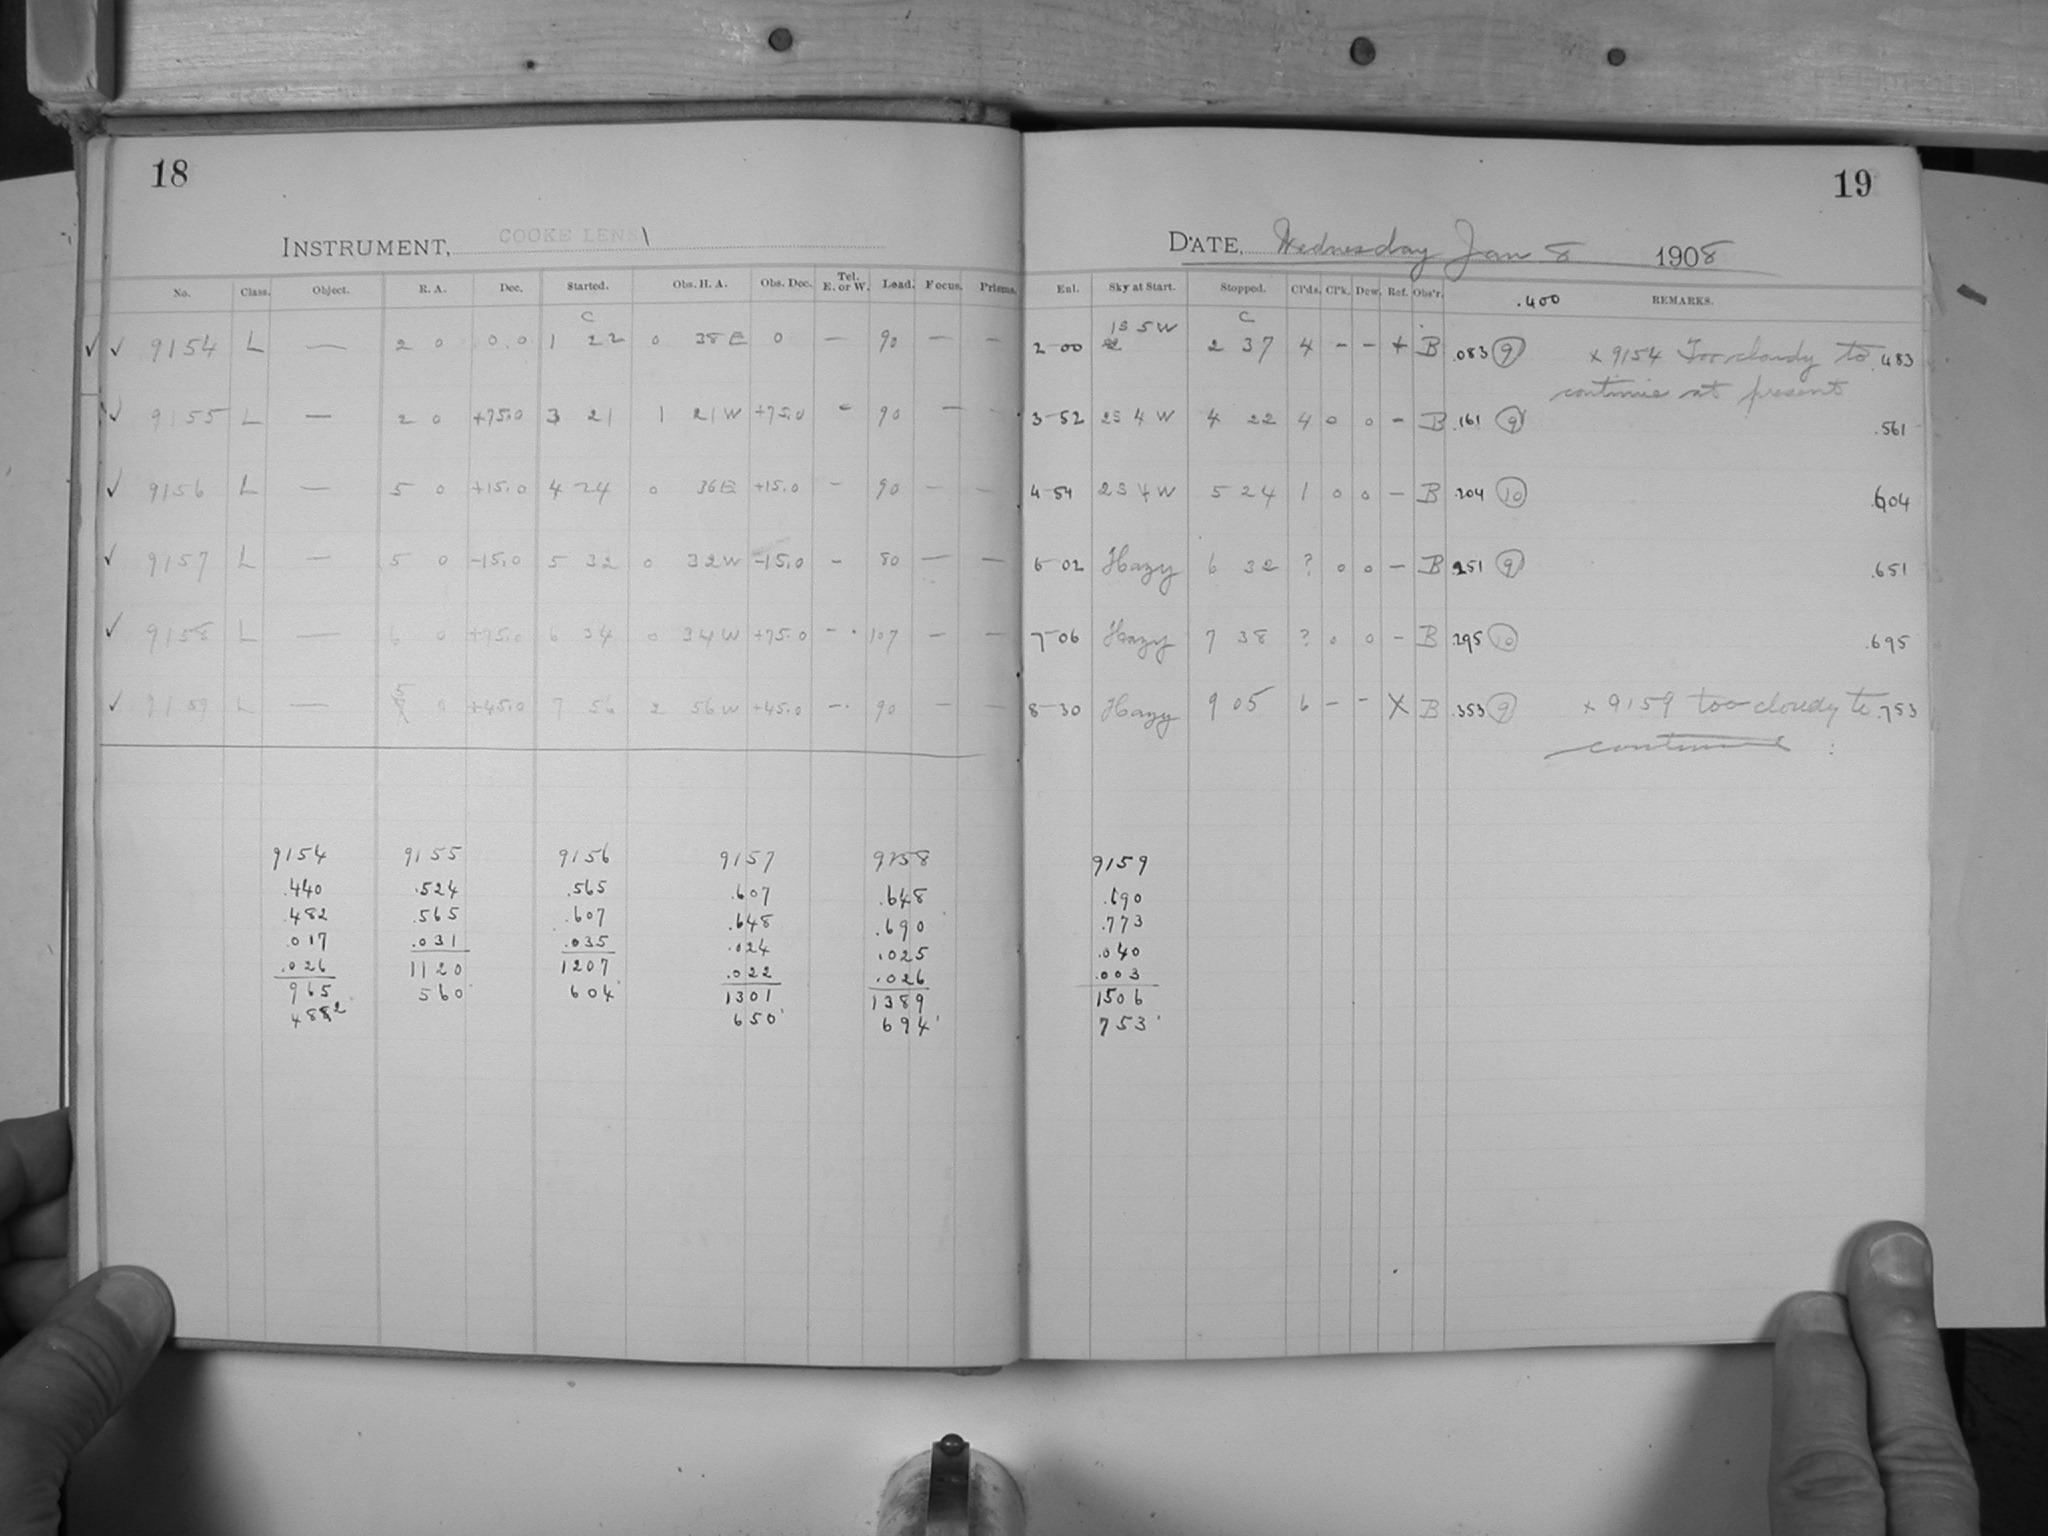 18
INSTRUMENT, COOKE LENS
No. Class. Object. R. A. Dec. Started. Obs. H. A. Obs. Dec. Tel. E. or W. Load. Focus. Prisms.
C
✓ ✓ 9154 L — 2 0 0.0 1 22 0 38 E 0 — 90 — —
✓ 9155 L — 2 0 +75.0 3 21 1 21 W +75.0 - 90 — -
✓ 9156 L — 5 0 +15.0 4 24 0 36 E +15.0 - 90 — —
✓ 9157 L — 5 0 -15.0 5 32 0 32 W -15.0 - 80 — —
✓ 9158 L — 6 0 +75.0 6 34 0 34 W +75.0 - 107 — —
✓ 9159 L — 5 0 +45.0 7 56 2 56 W +45.0 - 90 — —
9154 9155 9156 9157 9158
.440 .524 .565 .607 .648
.482 .565 .607 .648 .690
.017 .031 .035 .024 .025
.026 1120 1207 .022 .026
965 560 604 1301 1389
482 650 694
19
DATE, Wednesday Jan 8 1908
Exl. Sky at Start. Stopped. Cl'ds. Cl'k. Dew. Ref. Obs'r. .400 REMARKS.
C
2-00 1S 5W 2 37 4 - - + B .083 9 x 9154 Too cloudy to .483
continue at present
3-52 2S 4 W 4 22 4 0 0 - B .161 9 .561
4-54 2S 4 W 5 24 1 0 0 - B .204 10 .604
6-02 Hazy 6 32 ? 0 0 - B .251 9 .651
7-06 Hazy 7 38 ? 0 0 - B .295 10 .695
8-30 Hazy 9 05 6 - - X B .353 9 x 9159 too cloudy to .753
continue
9159
.690
.773
.040
.003
1506
753